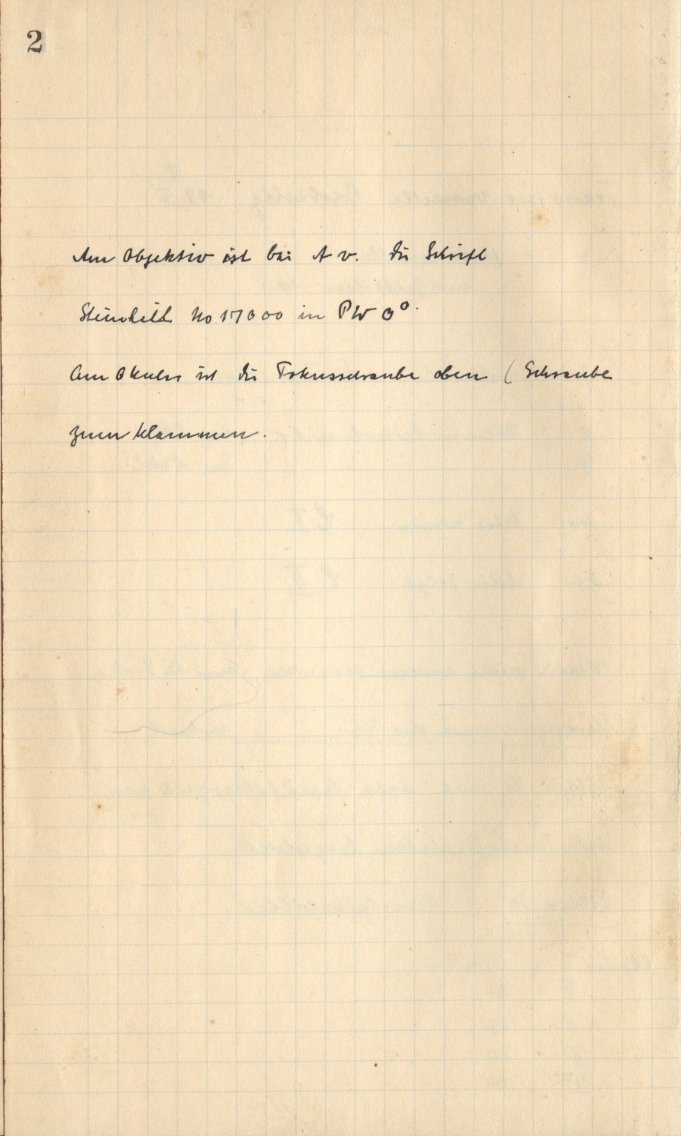 2
Am Objektiv ist bei A v. die Schrift
Steinheil No 17000 in PW 0°.
Am Okular ist die Fokusschraube oben (Schraube
zum Klammen.